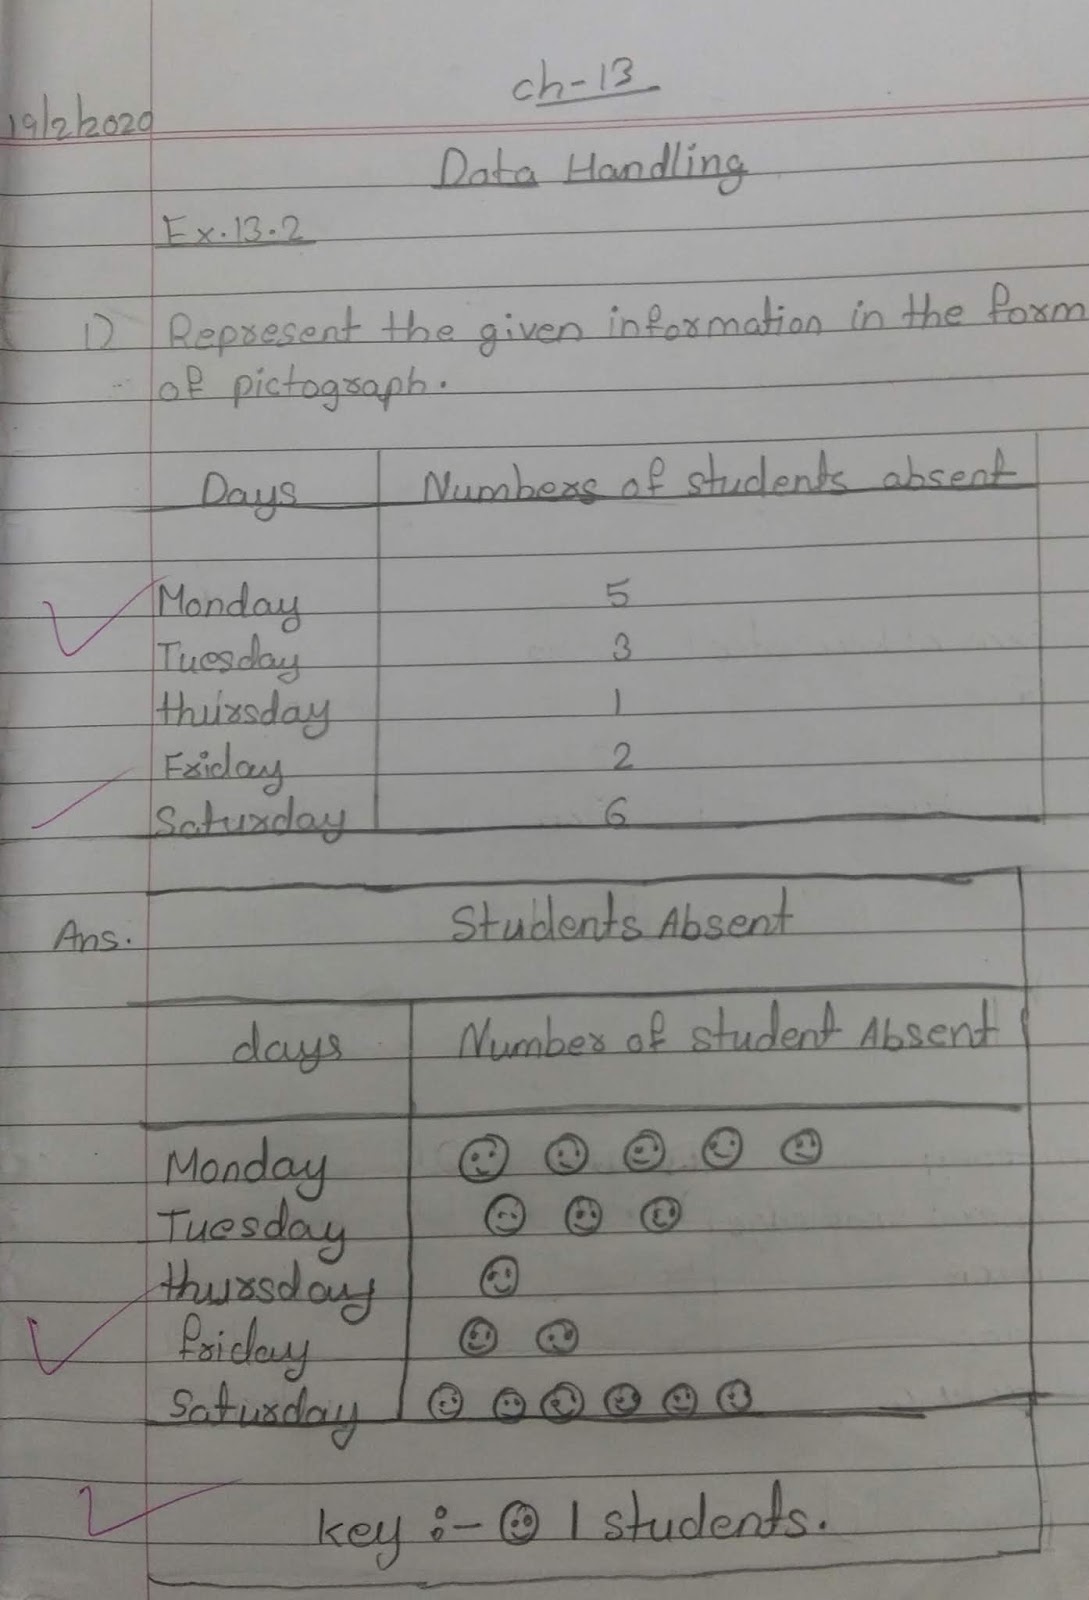 ch-13
19/2/2020
Data Handling
Ex.13.2
1) Represent the given information in the form
of pictograph.
Days Numbers of students absent
Monday 5
Tuesday 3
thursday 1
Friday 2
Saturday 6
Ans. Students Absent
days Number of student Absent
Monday
Tuesday
thursday
friday
Saturday
key :- 1 students.